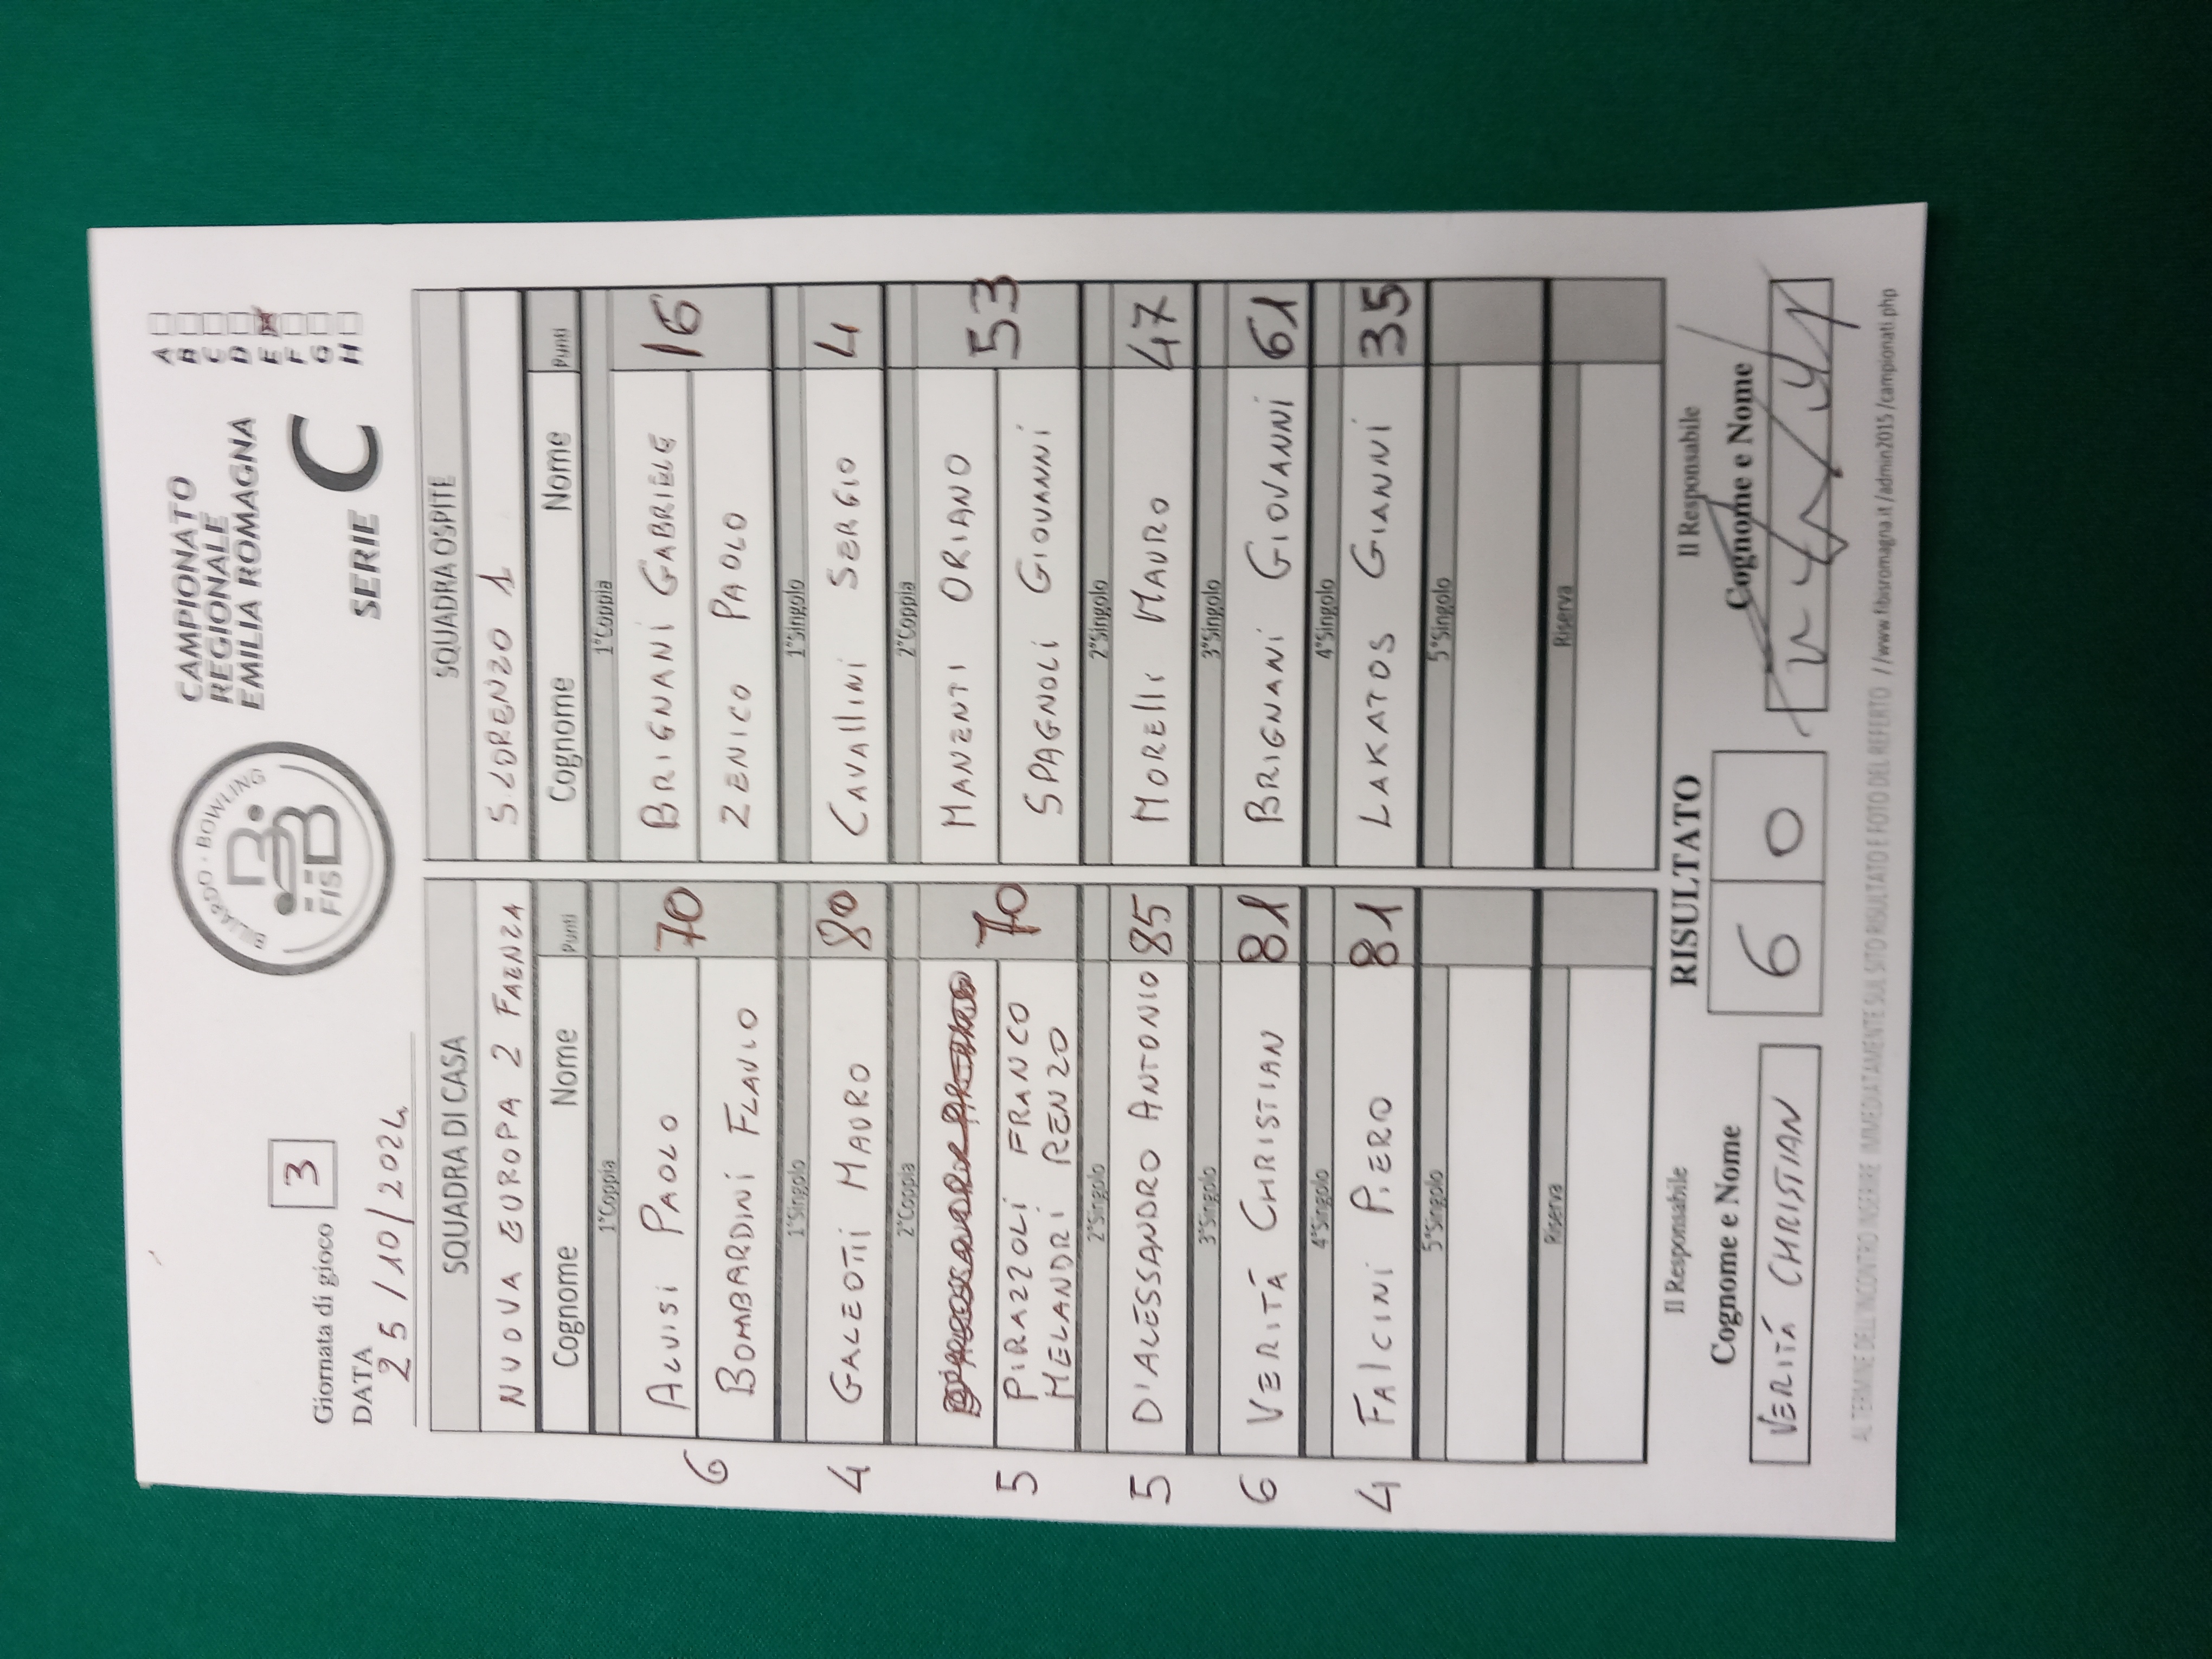 Giornata di gioco 3
DATA
25/10/2024
BILIARDO · BOWLING
FISBB
CAMPIONATO
REGIONALE
EMILIA ROMAGNA
SERIE C
A
B
C
D
E
F
G
H
SQUADRA DI CASA
NUOVA EUROPA 2 FAENZA
Cognome Nome Punti
1°Coppia
6 ALVISI PAOLO 70
BOMBARDINI FLAVIO
1°Singolo
4 GALEOTTI MAURO 80
2°Coppia
5 PIRAZZOLI FRANCO 70
MELANDRI RENZO
2°Singolo
5 D'ALESSANDRO ANTONIO 85
3°Singolo
6 VERITÁ CHRISTIAN 81
4°Singolo
4 FALCINI PIERO 81
5°Singolo
Riserva
SQUADRA OSPITE
S. LORENZO 1
Cognome Nome Punti
1°Coppia
BRIGNANI GABRIELE 16
ZENICO PAOLO
1°Singolo
CAVALLINI SERGIO 4
2°Coppia
MANENTI ORIANO 53
SPAGNOLI GIOVANNI
2°Singolo
MORELLI MAURO 47
3°Singolo
BRIGNANI GIOVANNI 61
4°Singolo
LAKATOS GIANNI 35
5°Singolo
Riserva
Il Responsabile
Cognome e Nome
VERITÁ CHRISTIAN
RISULTATO
6 0
Il Responsabile
Cognome e Nome
AL TERMINE DELL'INCONTRO INSERIRE IMMEDIATAMENTE SUL SITO RISULTATO E FOTO DEL REFERTO //www.fibisromagna.it/admin2015/campionati.php